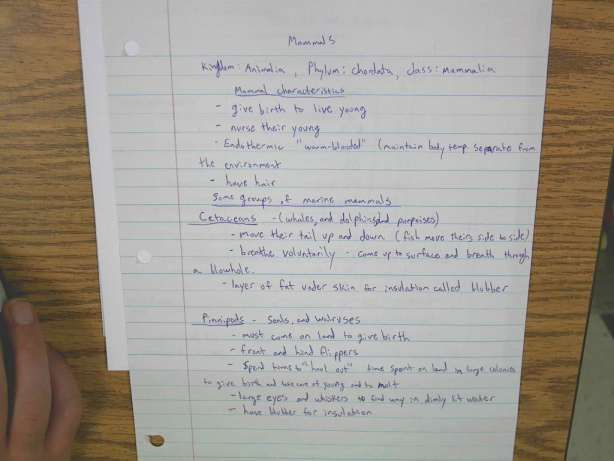 Mammals
Kingdom: Animalia, Phylum: chordata, class: mammalia
Mammal characteristics
- give birth to live young
- nurse their young
- Endothermic "warm-blooded" (maintain body temp. separate from
the environment
- have hair
Some groups of marine mammals
Cetaceans - (whales, and dolphins, and porpoises)
- move their tail up and down (fish move theirs side to side)
- breathe voluntarily - come up to surface and breath through
a blowhole.
- layer of fat under skin for insulation called blubber
Pinnipeds - Seals, and walruses
- must come on land to give birth
- front and hind flippers
- Spend time to "haul out" time spent on land in large colonies
to give birth and take care of young and to molt
- large eyes and whiskers to find way in dimly lit water
- have blubber for insulation